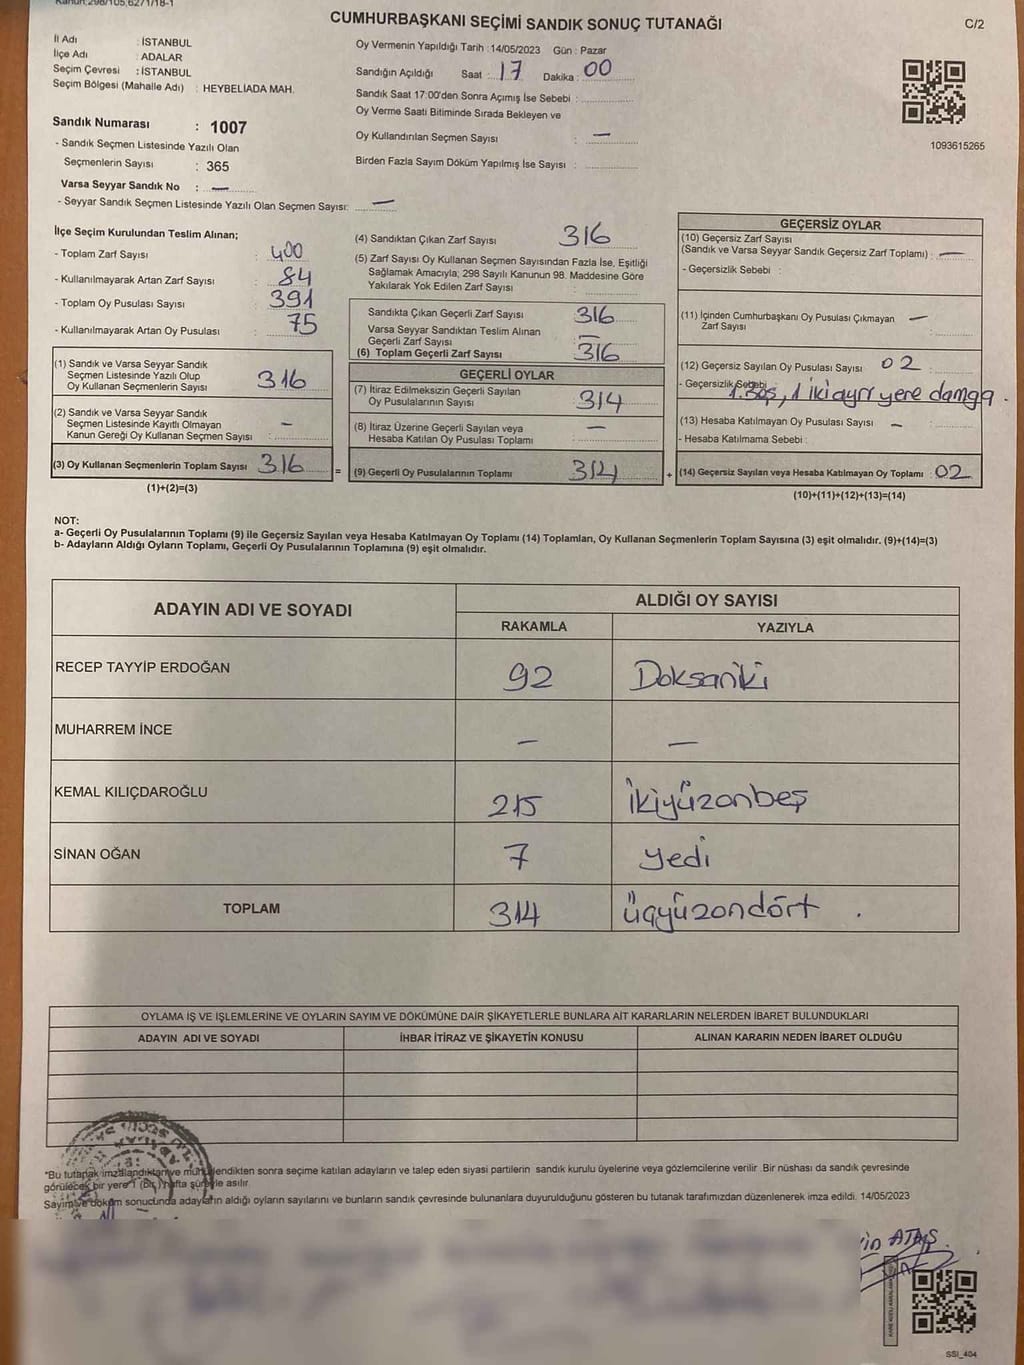 Kanun:298/105,6271/18-1
CUMHURBAŞKANI SEÇİMİ SANDIK SONUÇ TUTANAĞI
C/2
İl Adı : İSTANBUL
İlçe Adı : ADALAR
Seçim Çevresi : İSTANBUL
Seçim Bölgesi (Mahalle Adı) : HEYBELİADA MAH.
Sandık Numarası : 1007
- Sandık Seçmen Listesinde Yazılı Olan
Seçmenlerin Sayısı : 365
Varsa Seyyar Sandık No : —
- Seyyar Sandık Seçmen Listesinde Yazılı Olan Seçmen Sayısı: —
Oy Vermenin Yapıldığı Tarih : 14/05/2023 Gün : Pazar
Sandığın Açıldığı Saat : 17 Dakika : 00
Sandık Saat 17:00'den Sonra Açımış İse Sebebi :
Oy Verme Saati Bitiminde Sırada Bekleyen ve
Oy Kullandırılan Seçmen Sayısı : —
Birden Fazla Sayım Döküm Yapılmış İse Sayısı :
1093615265
İlçe Seçim Kurulundan Teslim Alınan;
- Toplam Zarf Sayısı : 400
- Kullanılmayarak Artan Zarf Sayısı : 84
- Toplam Oy Pusulası Sayısı : 391
- Kullanılmayarak Artan Oy Pusulası : 75
(1) Sandık ve Varsa Seyyar Sandık
Seçmen Listesinde Yazılı Olup
Oy Kullanan Seçmenlerin Sayısı : 316
(2) Sandık ve Varsa Seyyar Sandık
Seçmen Listesinde Kayıtlı Olmayan
Kanun Gereği Oy Kullanan Seçmen Sayısı : —
(3) Oy Kullanan Seçmenlerin Toplam Sayısı : 316
(1)+(2)=(3)
=
(4) Sandıktan Çıkan Zarf Sayısı : 316
(5) Zarf Sayısı Oy Kullanan Seçmen Sayısından Fazla İse, Eşitliği
Sağlamak Amacıyla; 298 Sayılı Kanunun 98. Maddesine Göre
Yakılarak Yok Edilen Zarf Sayısı :
Sandıkta Çıkan Geçerli Zarf Sayısı : 316
Varsa Seyyar Sandıktan Teslim Alınan
Geçerli Zarf Sayısı : —
(6) Toplam Geçerli Zarf Sayısı : 316
GEÇERLİ OYLAR
(7) İtiraz Edilmeksizin Geçerli Sayılan
Oy Pusulalarının Sayısı : 314
(8) İtiraz Üzerine Geçerli Sayılan veya
Hesaba Katılan Oy Pusulası Toplamı : —
(9) Geçerli Oy Pusulalarının Toplamı : 314
+
GEÇERSİZ OYLAR
(10) Geçersiz Zarf Sayısı
(Sandık ve Varsa Seyyar Sandık Geçersiz Zarf Toplamı) : —
- Geçersizlik Sebebi :
(11) İçinden Cumhurbaşkanı Oy Pusulası Çıkmayan
Zarf Sayısı : —
(12) Geçersiz Sayılan Oy Pusulası Sayısı : 02
- Geçersizlik Sebebi : 1.Boş, 1 iki ayrı yere damga.
(13) Hesaba Katılmayan Oy Pusulası Sayısı : —
- Hesaba Katılmama Sebebi :
(14) Geçersiz Sayılan veya Hesaba Katılmayan Oy Toplamı : 02
(10)+(11)+(12)+(13)=(14)
NOT:
a- Geçerli Oy Pusulalarının Toplamı (9) ile Geçersiz Sayılan veya Hesaba Katılmayan Oy Toplamı (14) Toplamları, Oy Kullanan Seçmenlerin Toplam Sayısına (3) eşit olmalıdır. (9)+(14)=(3)
b- Adayların Aldığı Oyların Toplamı, Geçerli Oy Pusulalarının Toplamına (9) eşit olmalıdır.
ADAYIN ADI VE SOYADI
ALDIĞI OY SAYISI
RAKAMLA YAZIYLA
RECEP TAYYİP ERDOĞAN 92 Doksaniki
MUHARREM İNCE — —
KEMAL KILIÇDAROĞLU 215 İkiyüzonbeş
SİNAN OĞAN 7 Yedi
TOPLAM 314 üçyüzondört .
OYLAMA İŞ VE İŞLEMLERİNE VE OYLARIN SAYIM VE DÖKÜMÜNE DAİR ŞİKAYETLERLE BUNLARA AİT KARARLARIN NELERDEN İBARET BULUNDUKLARI
ADAYIN ADI VE SOYADI İHBAR İTİRAZ VE ŞİKAYETİN KONUSU ALINAN KARARIN NEDEN İBARET OLDUĞU
"Bu tutanak imzalandıktan ve mühürlendikten sonra seçime katılan adayların ve talep eden siyasi partilerin sandık kurulu üyelerine veya gözlemcilerine verilir. Bir nüshası da sandık çevresinde
görülecek bir yere 1 (Bir) hafta süreyle asılır.
Sayım ve döküm sonucunda adayların aldığı oyların sayılarını ve bunların sandık çevresinde bulunanlara duyurulduğunu gösteren bu tutanak tarafımızdan düzenlenerek imza edildi. 14/05/2023
ATAŞ
SSI_404